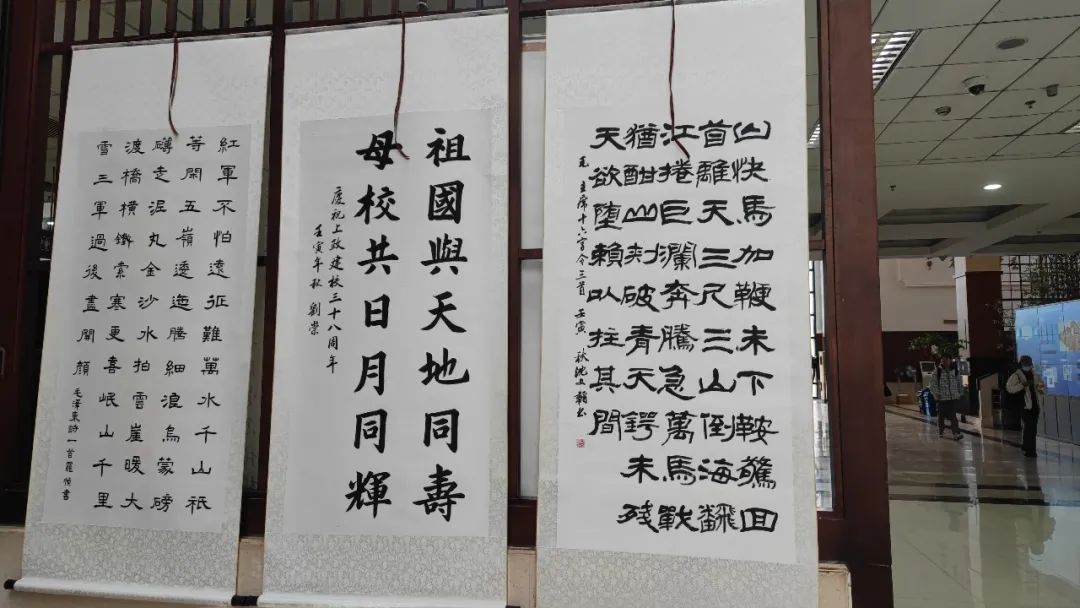 山快馬加鞭未下鞍驚回
首離天三尺三山倒海翻
江捲巨瀾奔騰急萬馬戰
猶酣山刺破青天鍔未殘
天欲堕賴以拄其間
毛主席十六字令三首 壬寅 秋沈
祖國與天地同壽
母校共日月同輝
慶祝上政建校三十八周年
壬寅年秋 劉崇
紅軍不怕遠征難萬水千山衹
等閑五嶺逶迤騰細浪烏蒙磅
礴走泥丸金沙水拍雲崖暖大
渡橋橫鐵索寒更喜岷山千里
雪三軍過後盡開顏
毛澤東詩一首羅書